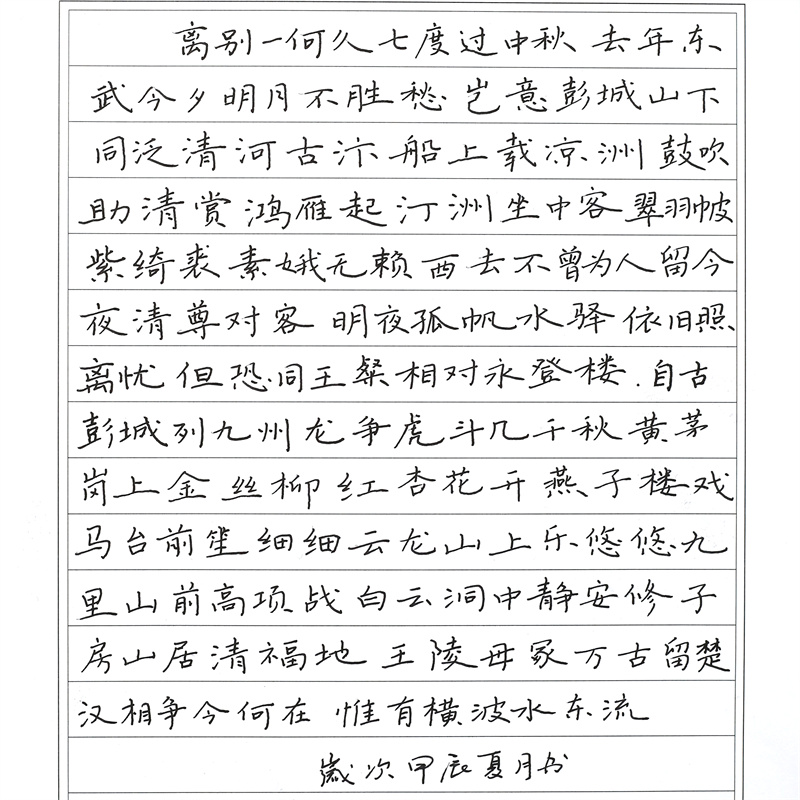 离别一何久七度过中秋去年东
武今夕明月不胜愁岂意彭城山下
同泛清河古汴船上载凉洲鼓吹
助清赏鸿雁起汀洲坐中客翠羽帔
紫绮裘素娥无赖西去不曾为人留今
夜清尊对客明夜孤帆水驿依旧照
离忧但恐同王粲相对永登楼.自古
彭城列九州龙争虎斗几千秋黄茅
岗上金丝柳红杏花开燕子楼戏
马台前笙细细云龙山上乐悠悠九
里山前高项战白云洞中静安修子
房山居清福地王陵母冢万古留楚
汉相争今何在惟有横波水东流
岁次甲辰夏月书